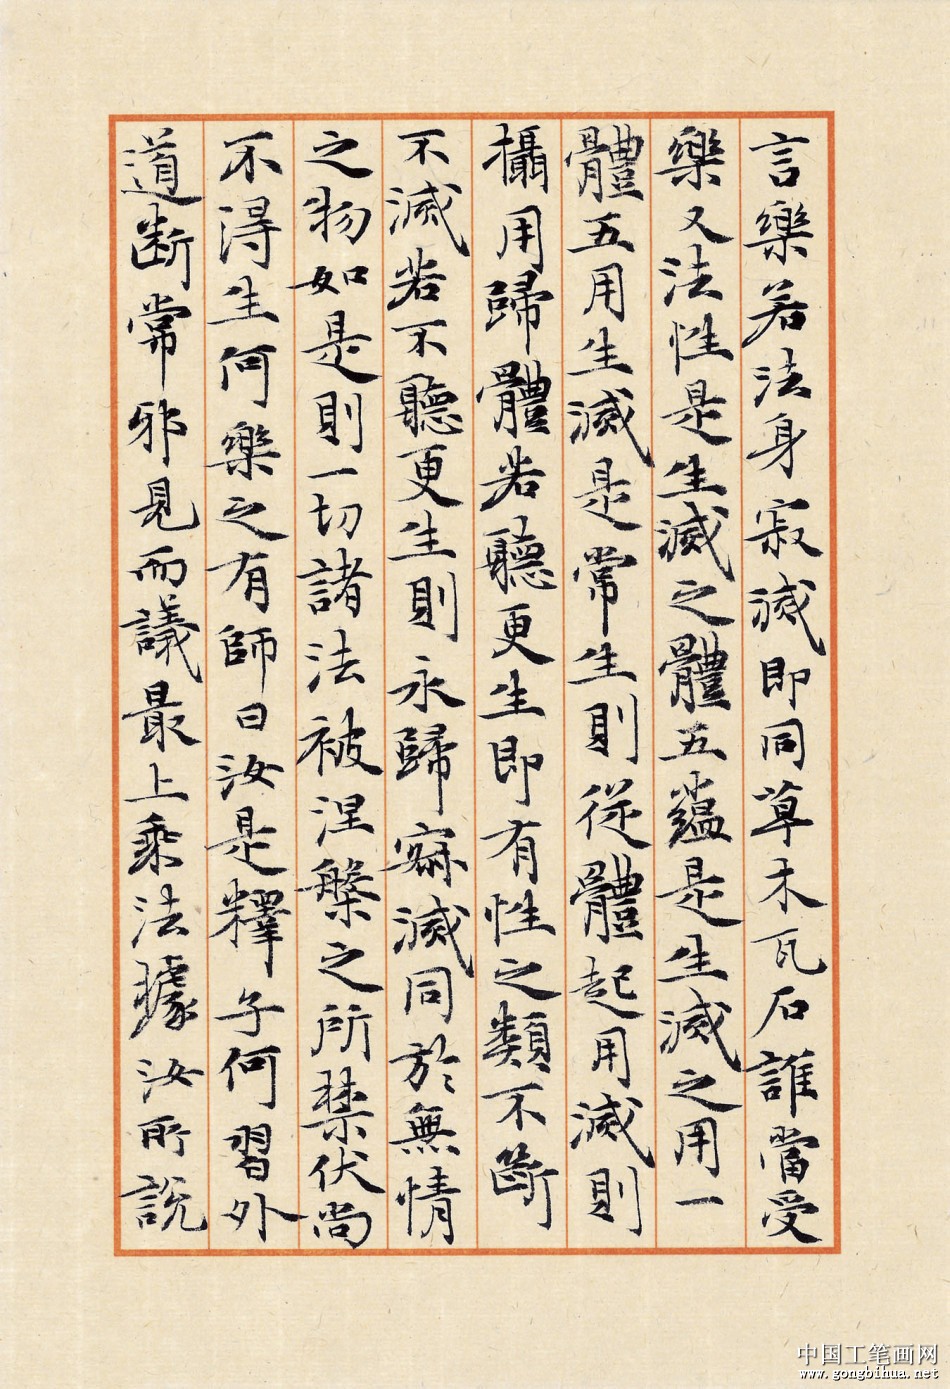 言樂若法身寂滅即同草木瓦石誰當受
樂又法性是生滅之體五蘊是生滅之用一
體五用生滅是常生則從體起用滅則
攝用歸體若聽更生即有性之類不斷
不滅若不聽更生則永歸寂滅同於無情
之物如是則一切諸法被涅槃之所禁伏尚
不得生何樂之有師曰汝是釋子何習外
道斷常邪見而議最上乘法據汝所說
中国工笔画网
www.gongbihua.net